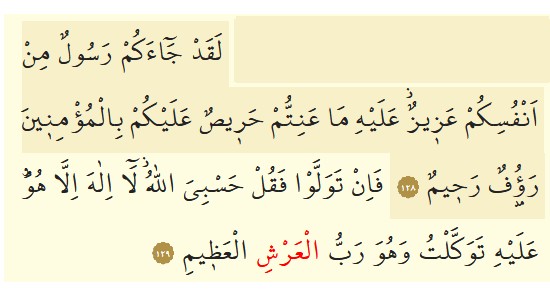 لَقَدْ جَٓاءَكُمْ رَسُولٌ مِنْ
اَنْفُسِكُمْ عَزٖيزٌۘ عَلَيْهِ مَا عَنِتُّمْ حَرٖيصٌ عَلَيْكُمْ بِالْمُؤْمِنٖينَ
رَؤُ۫فٌ رَحٖيمٌ ﴿١٢٨﴾ فَاِنْ تَوَلَّوْا فَقُلْ حَسْبِيَ اللّٰهُۘ لَٓا اِلٰهَ اِلَّا هُوَۜ
عَلَيْهِ تَوَكَّلْتُ وَهُوَ رَبُّ الْعَرْشِ الْعَظٖيمِ ﴿١٢٩﴾